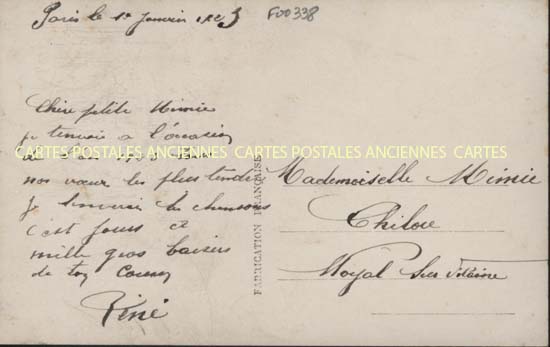 Paris le 1er Janvier 1923
F00338
Chère ptite Mimie
je tenvoie a l'occasion
nos vœux les plus tendres
Je tenverrai les chansons
c'est jours ci
mille gros baisers
de ton Cousin
Réné
CARTES POSTALES ANCIENNES CARTES POSTALES ANCIENNES CARTES
FABRICATION FRANÇAISE
Mademoiselle Mimie
Chiloé
Noyal sur Vilaine